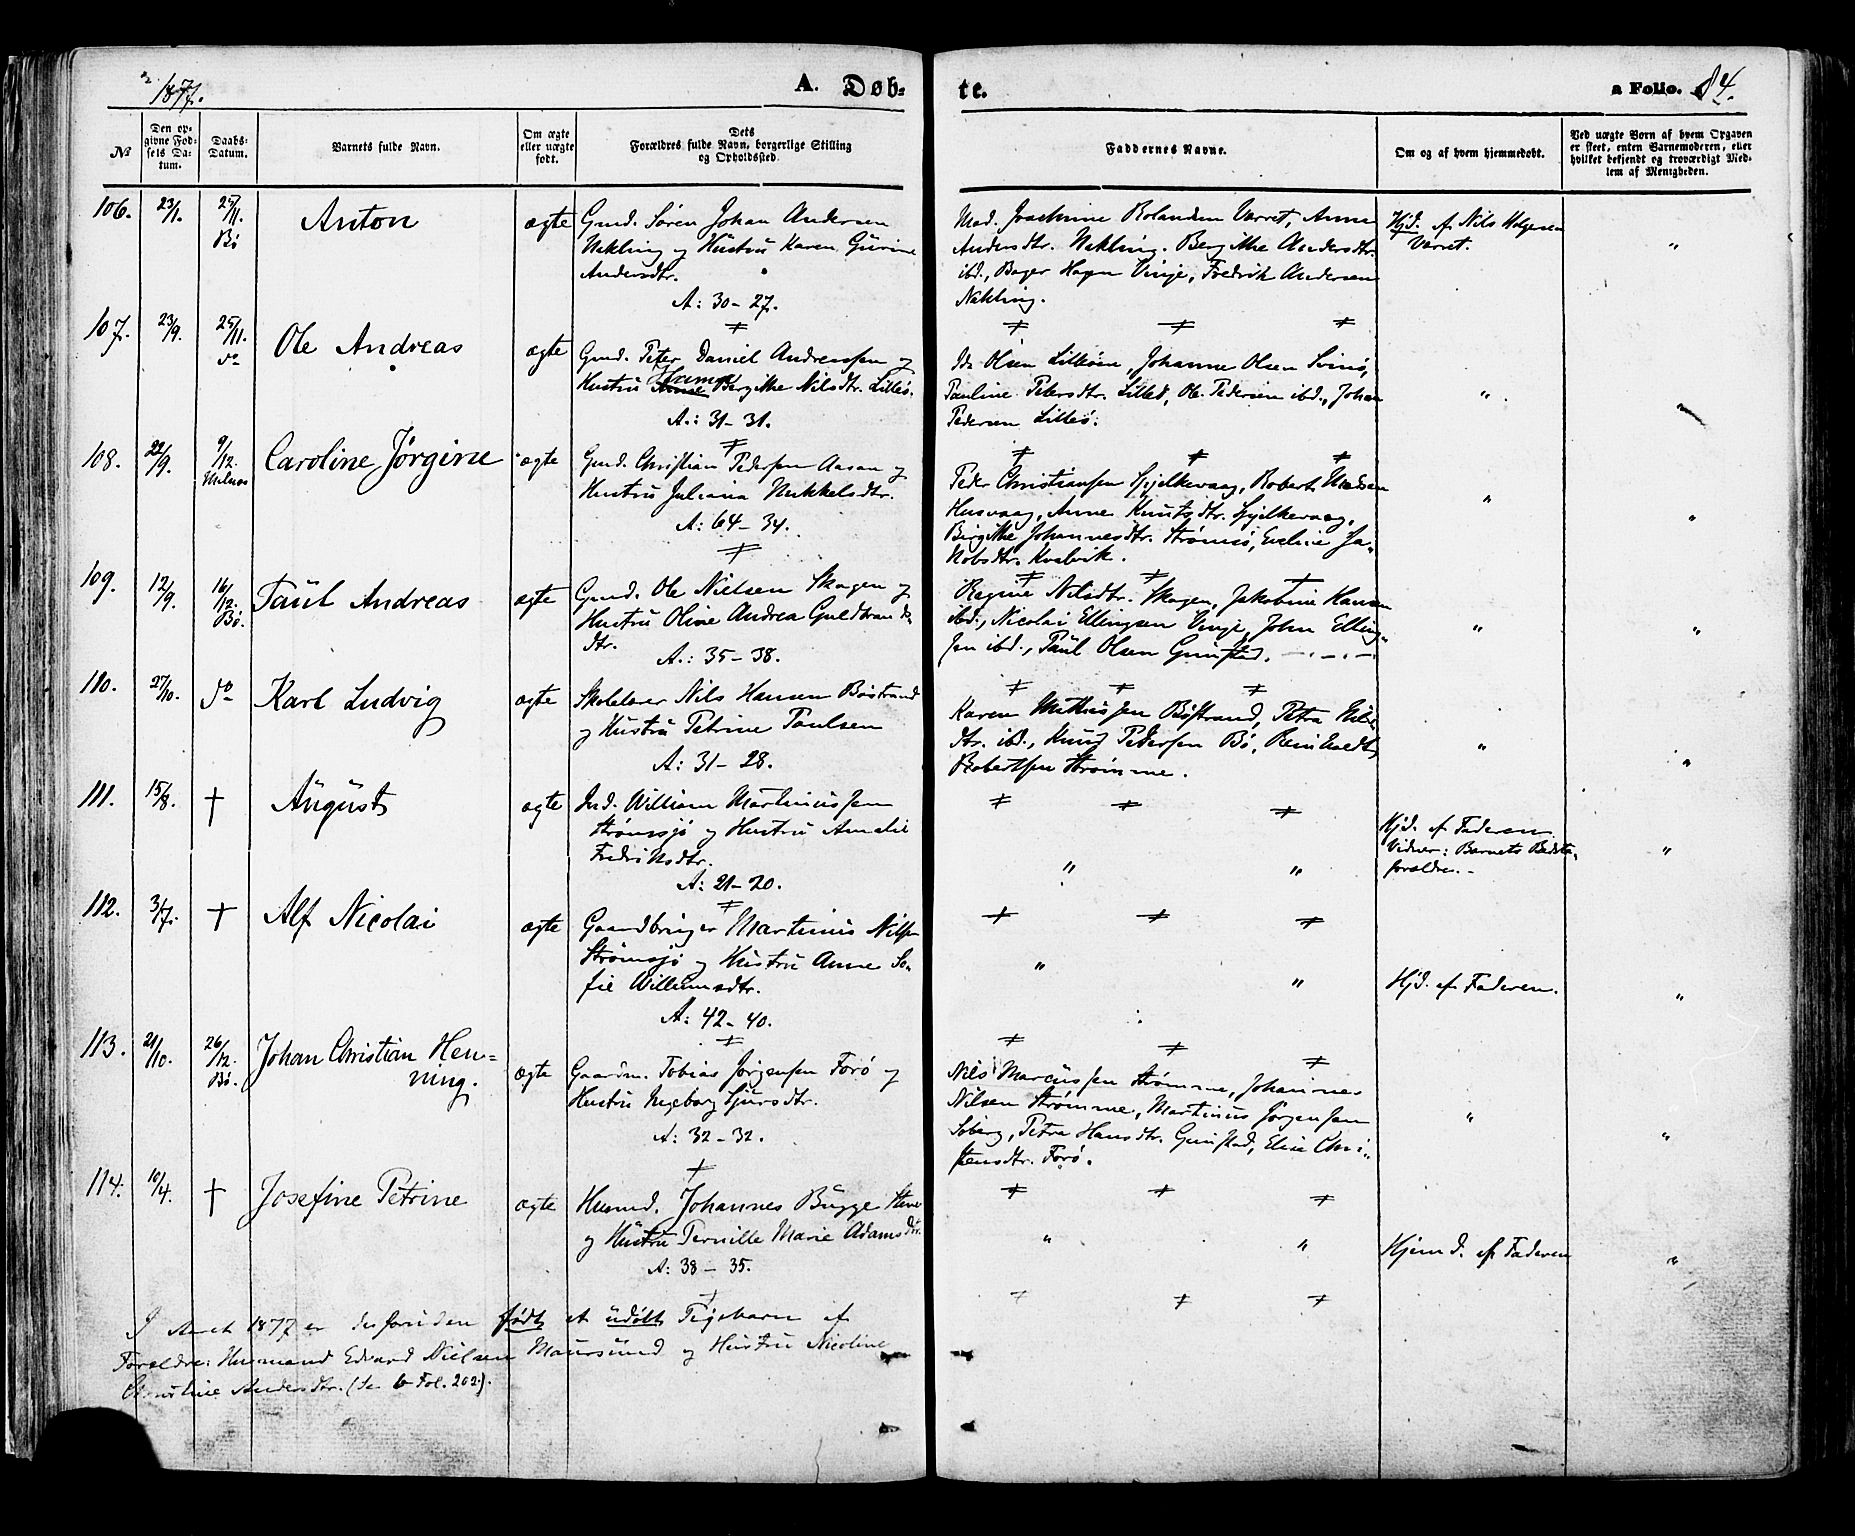 1877.
A. Døb-
te.
a Folio. 84.
№
Den op-
givne Fød-
sels Da-
tum.
Daabs-
Datum.
Barnets fulde Navn.
Om ægte
eller uægte
født.
Dets
Forældres fulde Navn, borgerlige Stilling
og Opholdssted.
Faddernes Navne.
Om og af hvem hjemmedøbt.
Ved uægte Børn af hvem Opgaven
er skeet, enten Barnemoderen, eller
hvilket bekjendt og troværdigt Med-
lem af Menigheden.
106.
23/1.
25/11.
Bø
Anton
ægte
Gmd. Søren Johan Andersen
Nykling og Hustru Karen Gurine
Andersdtr.
A: 30-27.
Mad. Joachime Rolandsen Varret, Anne
Andersdtr. Nykling. Bergithe Andersdtr.
ibd., Hagen Vinje, Fredrik Andersen
Nykling.
Hjd. af Nils Holgersen
Varret.
"
107.
23/9.
25/11.
do
Ole Andreas
ægte
Gmd. Peter Daniel Andreassen og
Hustru Bergithe Nilsdtr. Lilleø.
A.: 31-31.
Ole Olsen Lilleøen, Johanne Olsen Svinø,
Pauline Petersdtr. Lilleø, Ole Pedersen ibd., Johan
Pedersen Lilleø.
"
108.
22/9.
9/12.
Malnes
Caroline Jørgine
ægte
Gmd. Christian Pedersen Aasan og
Hustru Juliana Mikkelsdtr.
A: 64-34.
Peder Christiansen Spjelkevaag, Robert Madsen
Husvaag, Anne Knutsdtr. Spjelkevaag,
Birgithe Johannesdtr. Strømsø, Eveline Ja-
kobsdtr. Kvalvik.
"
"
109.
12/9.
16/12.
Bø.
Paul Andreas
ægte
Gmd. Ole Nielsen Skagen og
Hustru Oline Andrea Guldbrands-
dtr.
A.: 35-38.
Regine Nilsdtr. Skagen, Jakobine Hansen
ibd., Nicolai Ellingsen Vinje, John Elling-
sen ibd., Paul Olsen Gunstad.
"
"
110.
27/10.
do
Karl Ludvig
ægte
Skolelærer Nils Hansen Bøstrand
og Hustru Petrine Paulsen
A: 31-28.
Karen Mathiassen Bøstrand, Petra Nils-
dtr. ibd., Knud Pedersen Bø, Reinholdt
Robertsen Strømme.
"
"
111.
15/8.
†
August
ægte
Ind. William Martinussen
Strømsjø og Hustru Amalie
Fredriksdtr.
A: 21-20.
" "
Hjd. af Faderen
Vidner: Barnets Bedste-
forældre.-
"
112.
3/7.
†
Alf Nicolai
ægte
Gaardbruger Martinus Nilsen
Strømsjø og Hustru Anne So-
fie Willumsdtr.
A: 42-40.
" "
Hjd. af Faderen.
"
113.
21/10.
26/12.
Bø.
Johan Christian Hen-
ning.
ægte
Gaardm. Tobias Jørgensen Forø og
Hustru Ingeborg Sjursdtr.
A: 32-32.
Nils Marcussen Strømme, Johannes
Nilsen Strømme, Martinus Jørgensen
Søberg, Petra Hansdtr. Gunstad, Elise Chri-
stensdtr. Forø.
"
"
114.
10/4.
†
Josefine Petrine
ægte
Husmd. Johannes Bugge Stene
og Hustru Pernille Marie Adamsdtr.
A: 38-35.
" "
Hjemd. af Faderen
"
I Aaret 1877 er desforuden født et udøbt Pigebarn af
Forældre: Husmand Edvard Nielsen Maursund og Hustru Nicoline
Christine Andersdtr. (Se b Fol. 202).